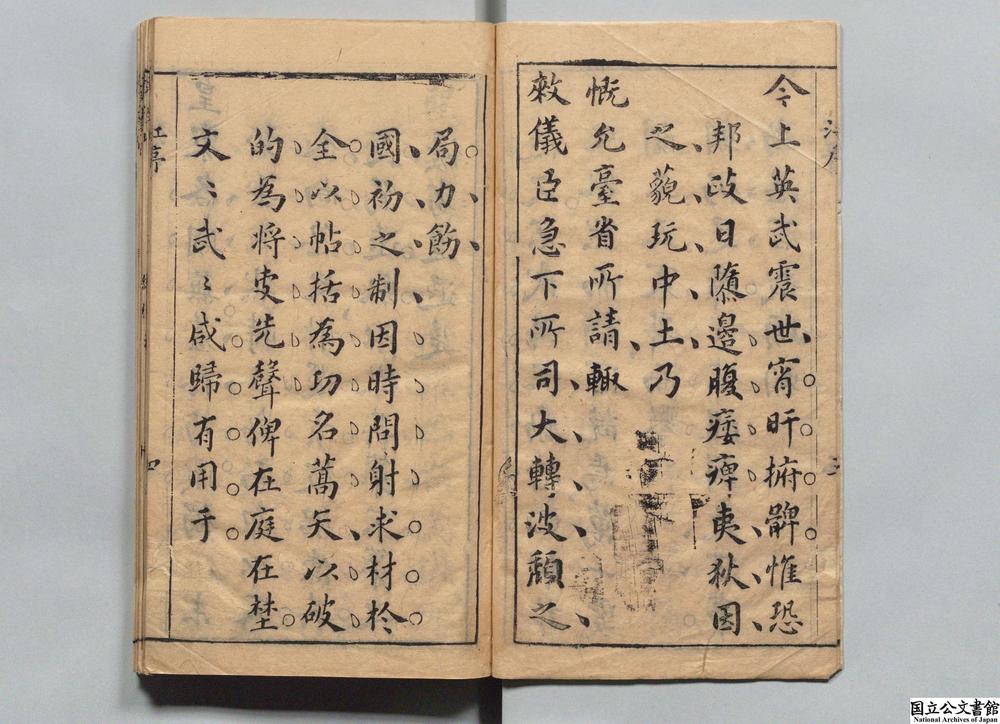 今上英武震世宵旰拊髀惟恐
邦政日隳邊腹痿痺夷狄因
之藐玩中土乃
慨允臺省所請輙
敕儀臣急下所司大轉波頹之
局力飭
國初之制因時問射求材於
全以帖括為功名蒿矢以破
的為將吏先聲俾在庭在埜
文〻武〻咸歸有用于
江序
四
国立公文書館
National Archives of Japan